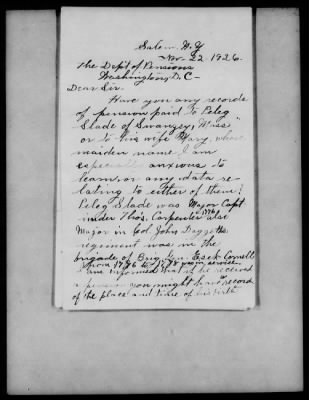 Salem, N.Y
Nov. 22 1926.
The Dept of Pensions
Washington, D.C-
Dear Sir.
Have you any records
of pension paid to Peleg
Slade of Swanzey, Mass
or to his wife Mary, whose
maiden name I am
especially anxious to
learn, or any data re-
lating to either of them?
Peleg Slade was Major Capt
under Tho's. Carpenter also
Major in Col John Daggetts
regiment was in the
brigade of Brig. Gen. Esek Cornell
from 1776 to 1778 in service
I am informed that if he received
a pension you might have record
of the place and time of his birth